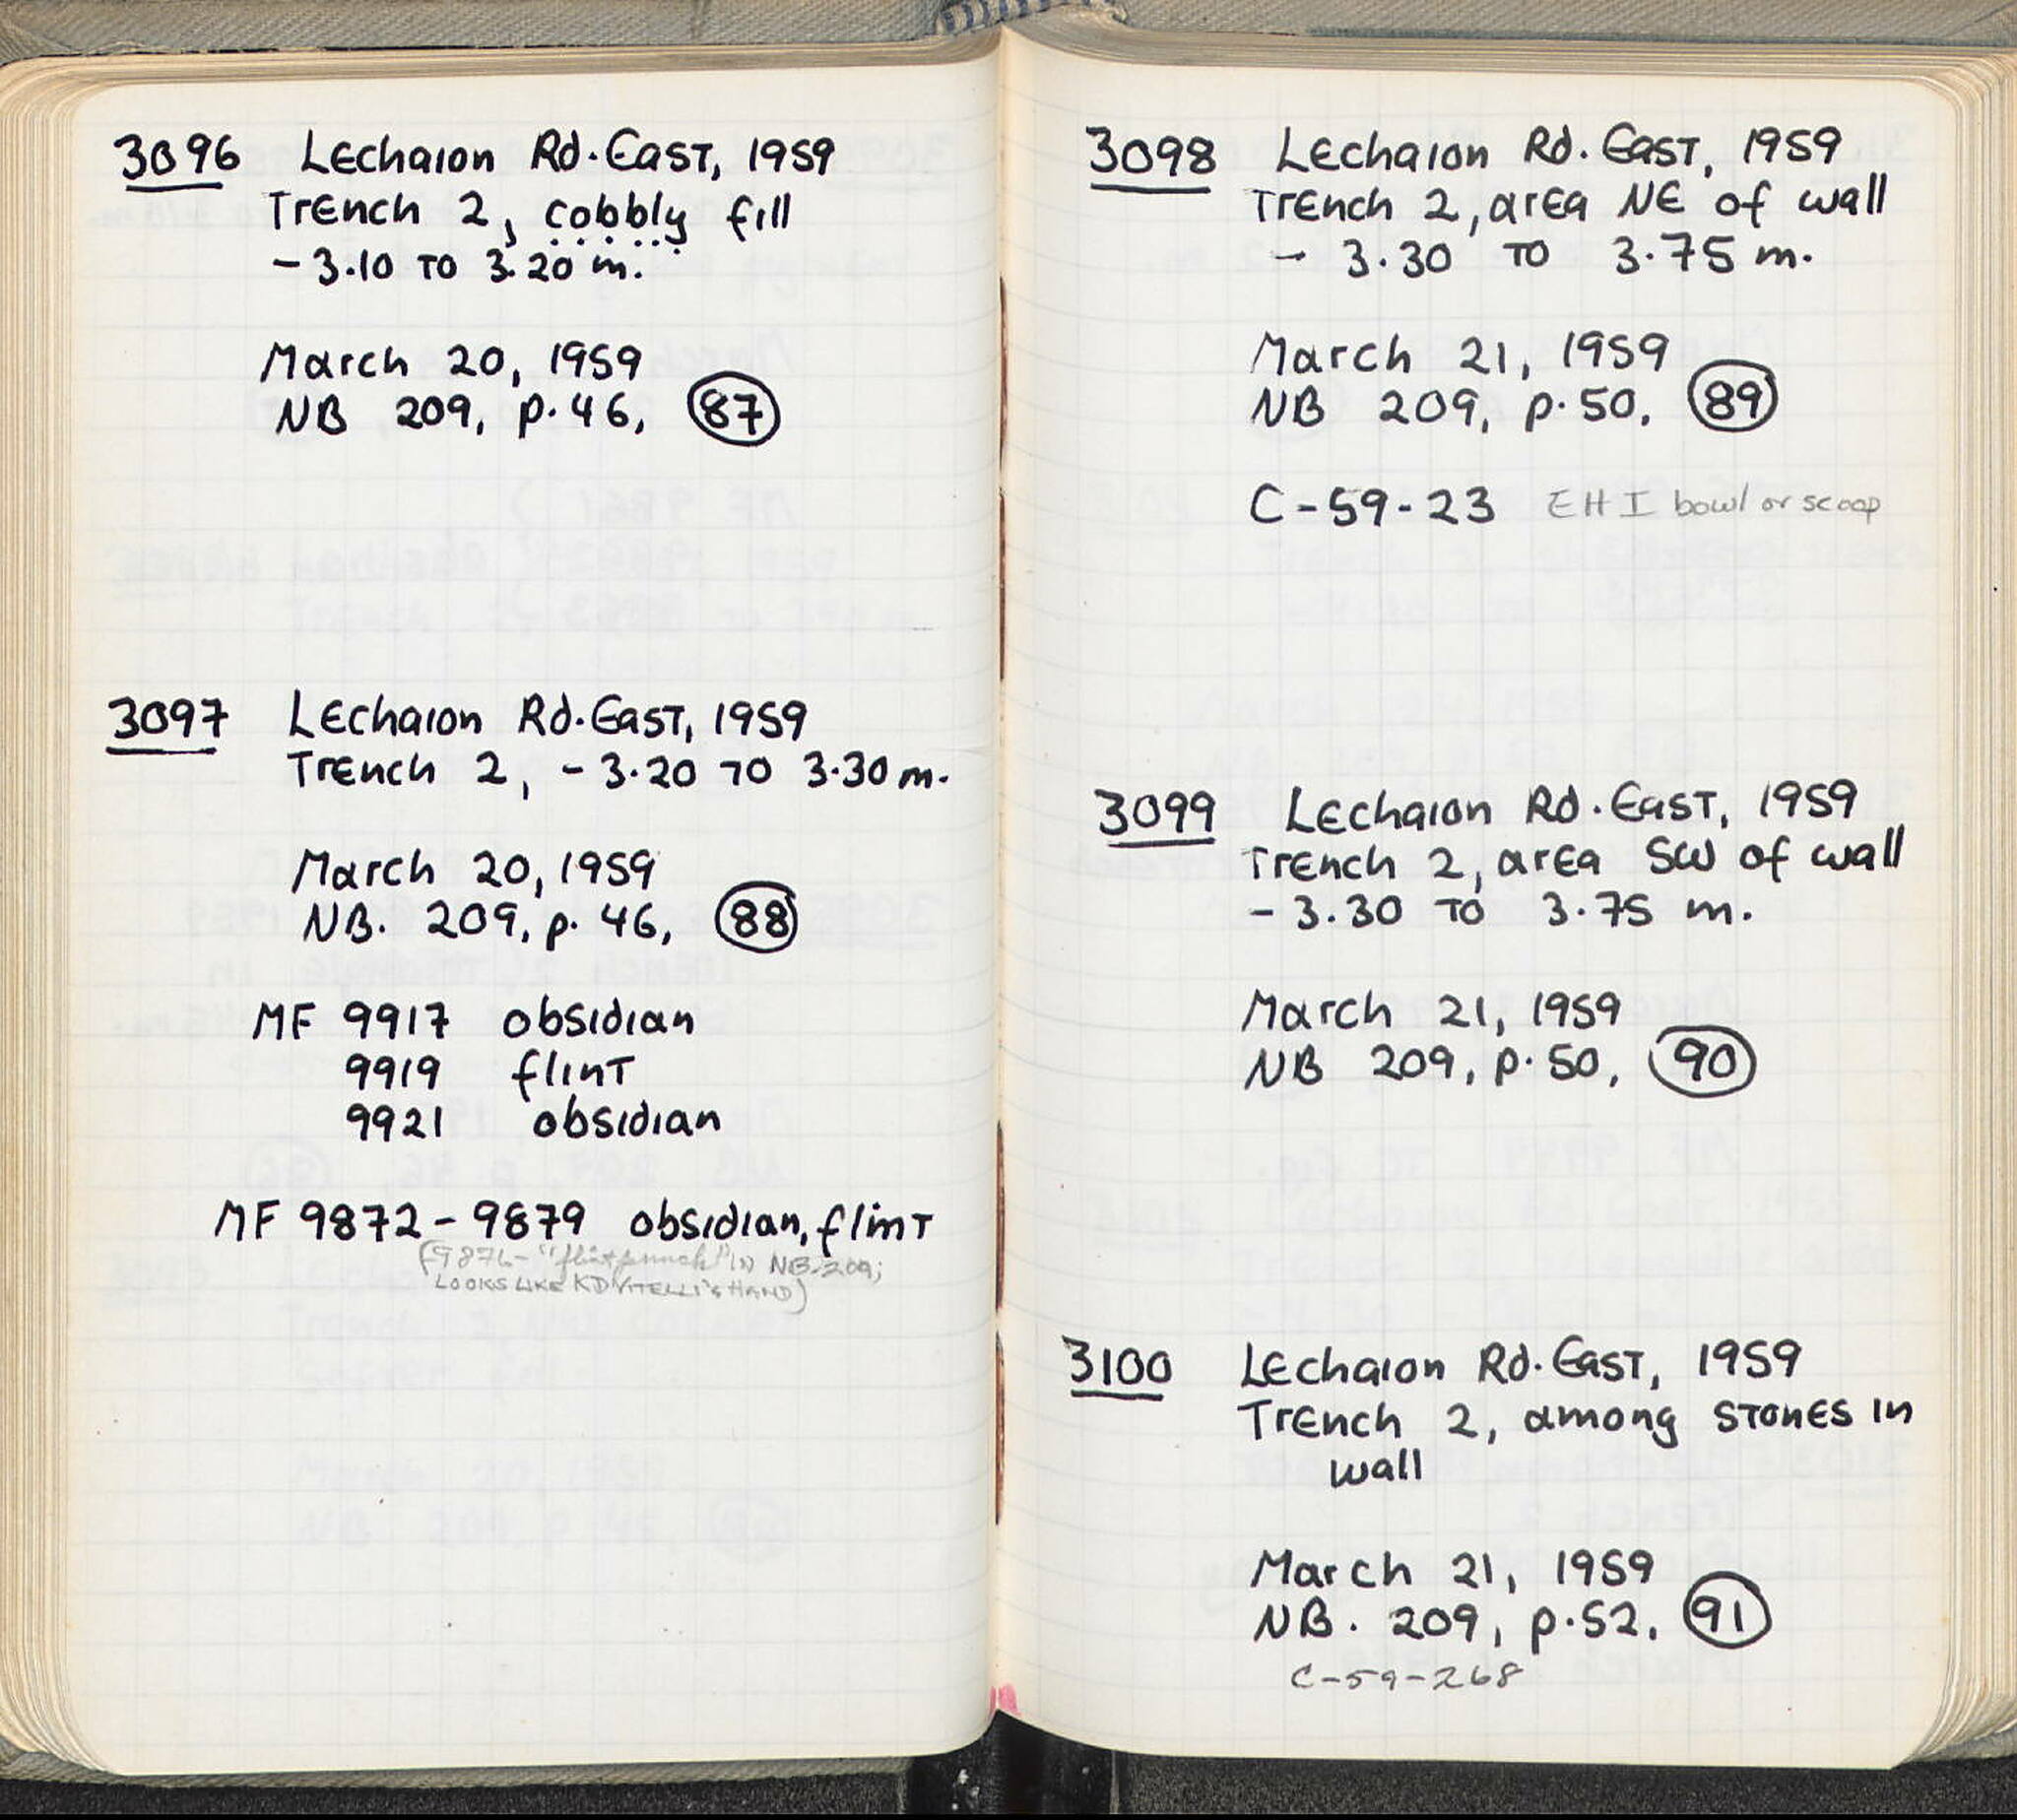 3096 Lechaion Rd. East, 1959
Trench 2, cobbly fill
- 3.10 to 3.20 m.
March 20, 1959
NB 209, p. 46, 87
3097 Lechaion Rd. East, 1959
Trench 2, - 3.20 to 3.30 m.
March 20, 1959
NB. 209, p. 46, 88
MF 9917 obsidian
9919 flint
9921 obsidian
MF 9872 - 9879 obsidian, flint
(9876 - "flint punch" in NB. 209;
LOOKS LIKE KD VITELLI'S HAND)
3098 Lechaion Rd. East, 1959
Trench 2, area NE of wall
- 3.30 to 3.75 m.
March 21, 1959
NB 209, p. 50, 89
C-59-23 EH I bowl or scoop
3099 Lechaion Rd. East, 1959
Trench 2, area SW of wall
- 3.30 to 3.75 m.
March 21, 1959
NB 209, p. 50, 90
3100 Lechaion Rd. East, 1959
Trench 2, among stones in
wall
March 21, 1959
NB. 209, p. 52, 91
C-59-268